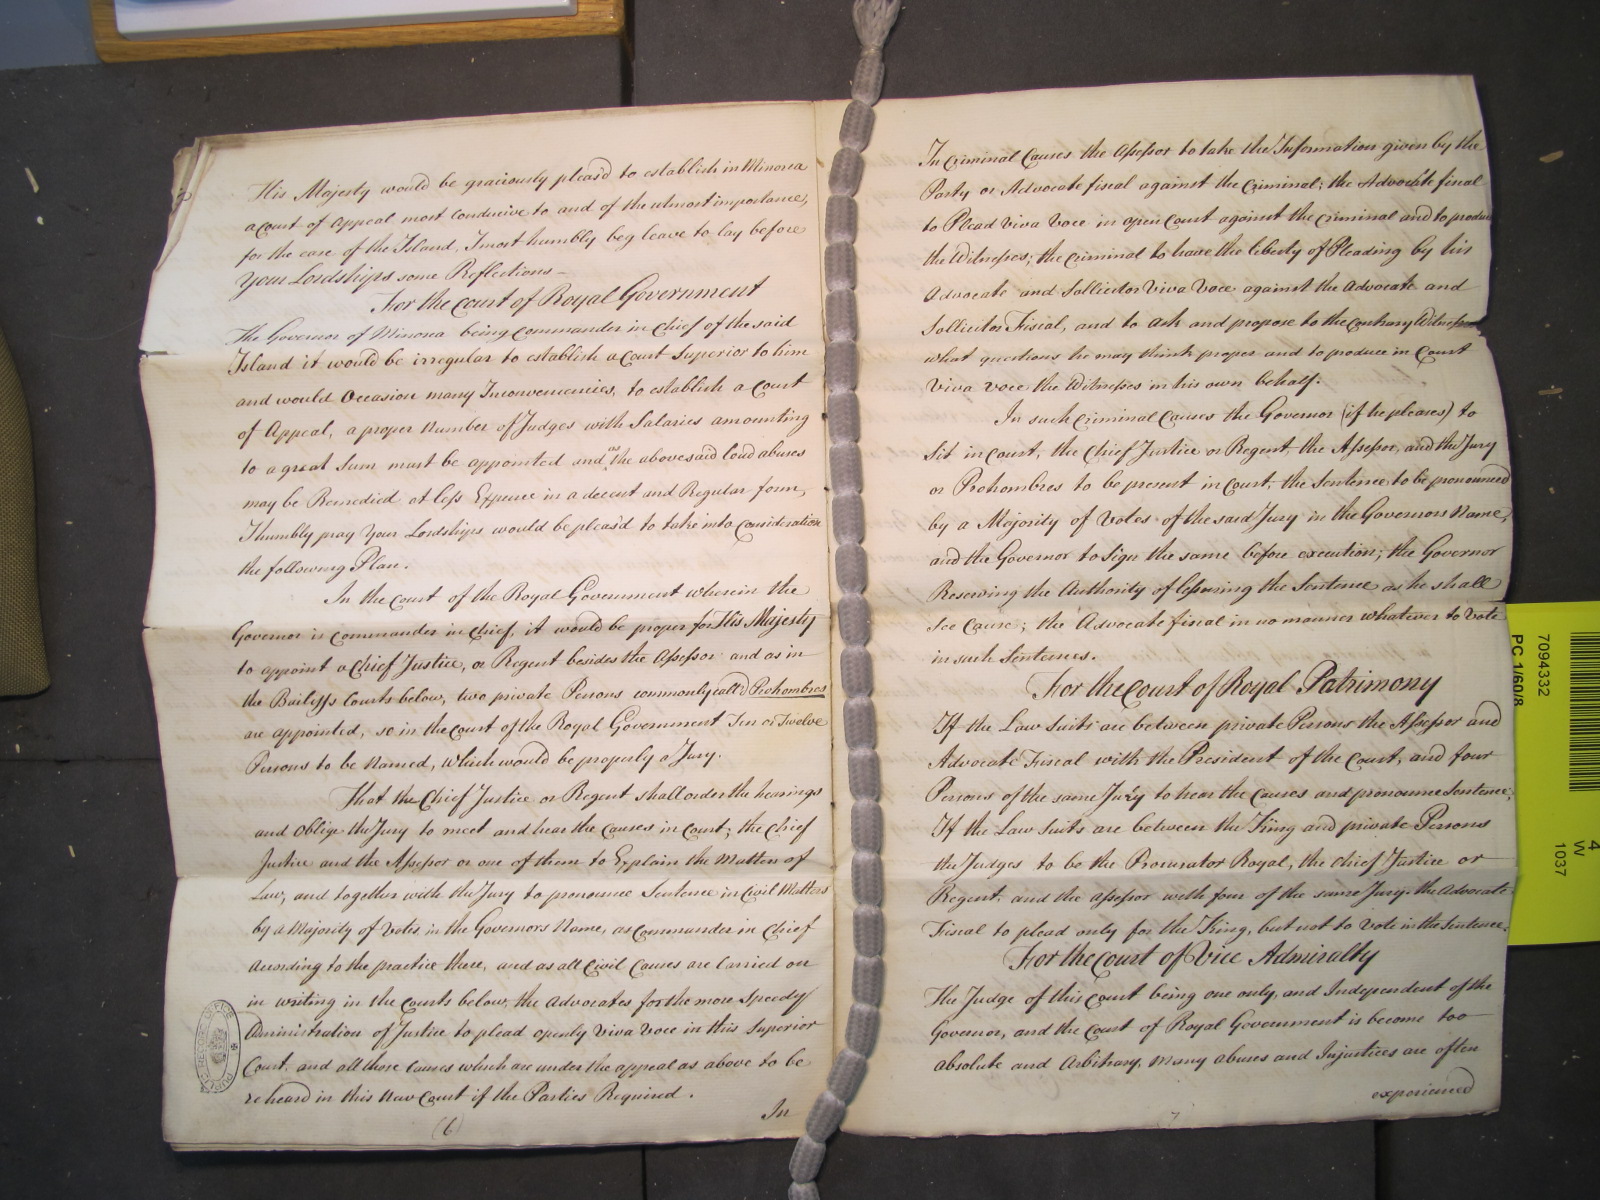 His Majesty would be graciously pleas'd to establish in Minorca
a Court of Appeal most conducive to and of the utmost importance,
for the ease of the Island, I most humbly beg leave to lay before
Your Lordships some Reflections —
For the Court of Royal Government
The Governor of Minorca being Commander in Chief of the said
Island it would be irregular to establish a Court Superior to him
and would Occasion many Inconveniencies, to establish a Court
of Appeal, a proper Number of Judges with Salaries amounting
to a great Sum must be appointed and as the abovesaid loud abuses
may be Remedied at less Expence in a decent and Regular form,
I humbly pray Your Lordships would be pleas'd to take into Consideration
the following Plan.
In the Court of the Royal Government wherein the
Governor is Commander in Chief, it would be proper for His Majesty
to appoint a Chief Justice, or Regent besides the Assessor and as in
the Bailiffs Courts below, two private Persons commonly call'd Prohombres
are appointed, so in the Court of the Royal Government Ten or Twelve
Persons to be Named, which would be properly a Jury.
That the Chief Justice or Regent shall order the hearings
and Oblige the Jury to meet and hear the Causes in Court; the Chief
Justice and the Assessor or one of them to Explain the Matters of
Law, and together with the Jury to pronounce Sentence in Civil Matters
by a Majority of Votes in the Governors Name, as Commander in Chief
according to the practice there, and as all Civil Causes are Carried on
in writing in the Courts below, the Advocates for the more Speedy
Administration of Justice to plead openly Viva Voce in this Superior
Court, and all those Causes which are under the appeal as above to be
reheard in this New Court if the Parties Required.
In
(6)
PUBLIC RECORD OFFICE
In Criminal Causes the Assessor to take the Information given by the
Party or Advocate fiscal against the Criminal; the Advocate fiscal
to Plead Viva Voce in open Court against the Criminal and to produce
the Witnesses; the Criminal to have the liberty of Pleading by his
Advocate and Sollicitor Viva Voce against the Advocate and
Sollicitor Fiscal, and to ask and propose to the contrary Witnesses
what questions he may think proper and to produce in Court
Viva voce the Witnesses in his own behalf.
In such Criminal Causes the Governor (if he pleases) to
Sit in Court, the Chief Justice or Regent, the Assessor, and the Jury
or Prohombres to be present in Court, the Sentence to be pronounced
by a Majority of Votes of the said Jury in the Governors Name,
and the Governor to Sign the same before execution; the Governor
Reserving the Authority of lessening the Sentence as he shall
See Cause; the Advocate fiscal in no manner whatever to Vote
in such Sentences.
For the Court of Royal Patrimony
If the Law Suits are between private Persons the Assessor and
Advocate Fiscal with the President of the Court, and four
Persons of the same Jury to hear the Causes and pronounce Sentence;
If the Law Suits are between the King and private Persons
the Judges to be the Procurator Royal, the Chief Justice or
Regent, and the assessor with four of the same Jury. the Advocate
Fiscal to plead only for the King, but not to Vote in the Sentence.
For the Court of Vice Admiralty
The Judge of this Court being one only, and Independent of the
Governor, and the Court of Royal Government is become too
absolute and Arbitrary, many abuses and Injustices are often
experienced
7
PC 1/60/8
7094332
4
W
1037